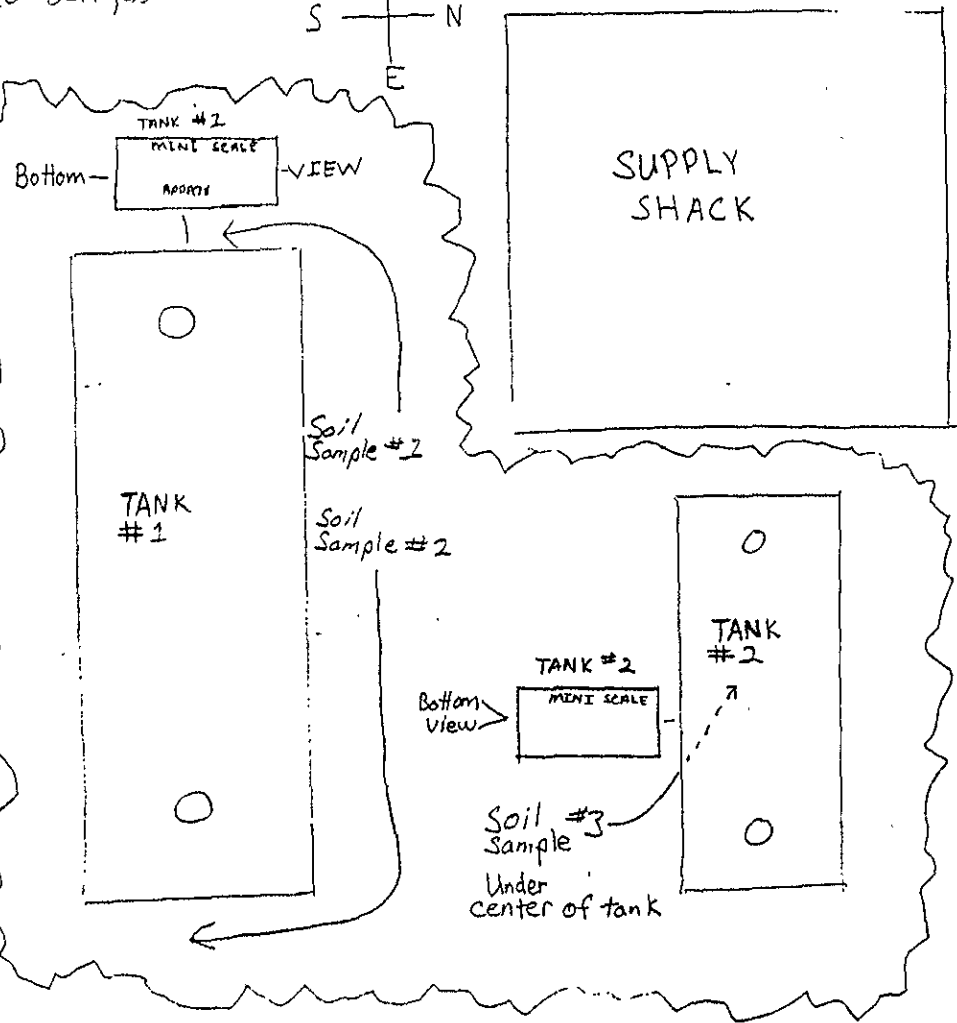 S N
E
TANK #1
MINI SCALE
Bottom VIEW
SUPPLY
SHACK
Soil
Sample #1
TANK
#1
Soil
Sample #2
TANK
#2
TANK #2
MINI SCALE
Bottom
View
Soil #3
Sample
Under
center of tank